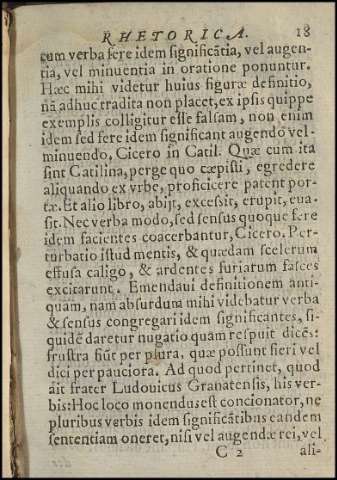 RHETORICA. 18
cum verba fere idem significãtia, vel augen-
tia, vel minuentia in oratione ponuntur.
Hæc mihi videtur huius figuræ definitio,
nã adhuc tradita non placet, ex ipsis quippe
exemplis colligitur esse falsam, non enim
idem sed fere idem significant augendo vel
minuendo, Cicero in Catil. Quæ cum ita
sint Catilina, perge quo cæpisti, egredere
aliquando ex vrbe, proficicere patent por-
tæ. Et alio libro, abijt, excessit, erupit, eua-
sit. Nec verba modo, sed sensus quoque fere
idem facientes coacerbantur, Cicero. Per-
turbatio istud mentis, & quædam scelerum
effusa caligo, & ardentes furiarum fasces
excitarunt. Emendaui definitionem anti-
quam, nam absurdum mihi videbatur verba
& sensus congregari idem significantes, si-
quidẽ daretur nugatio quam respuit dicẽs:
frustra fiũt per plura, quæ possunt fieri vel
dici per pauciora. Ad quod pertinet, quod
ait frater Ludouicus Granatensis, his ver-
bis: Hoc loco monendus est concionator, ne
pluribus verbis idem significãtibus eandem
sententiam oneret, nisi vel augendæ rei, vel
C 2 ali-